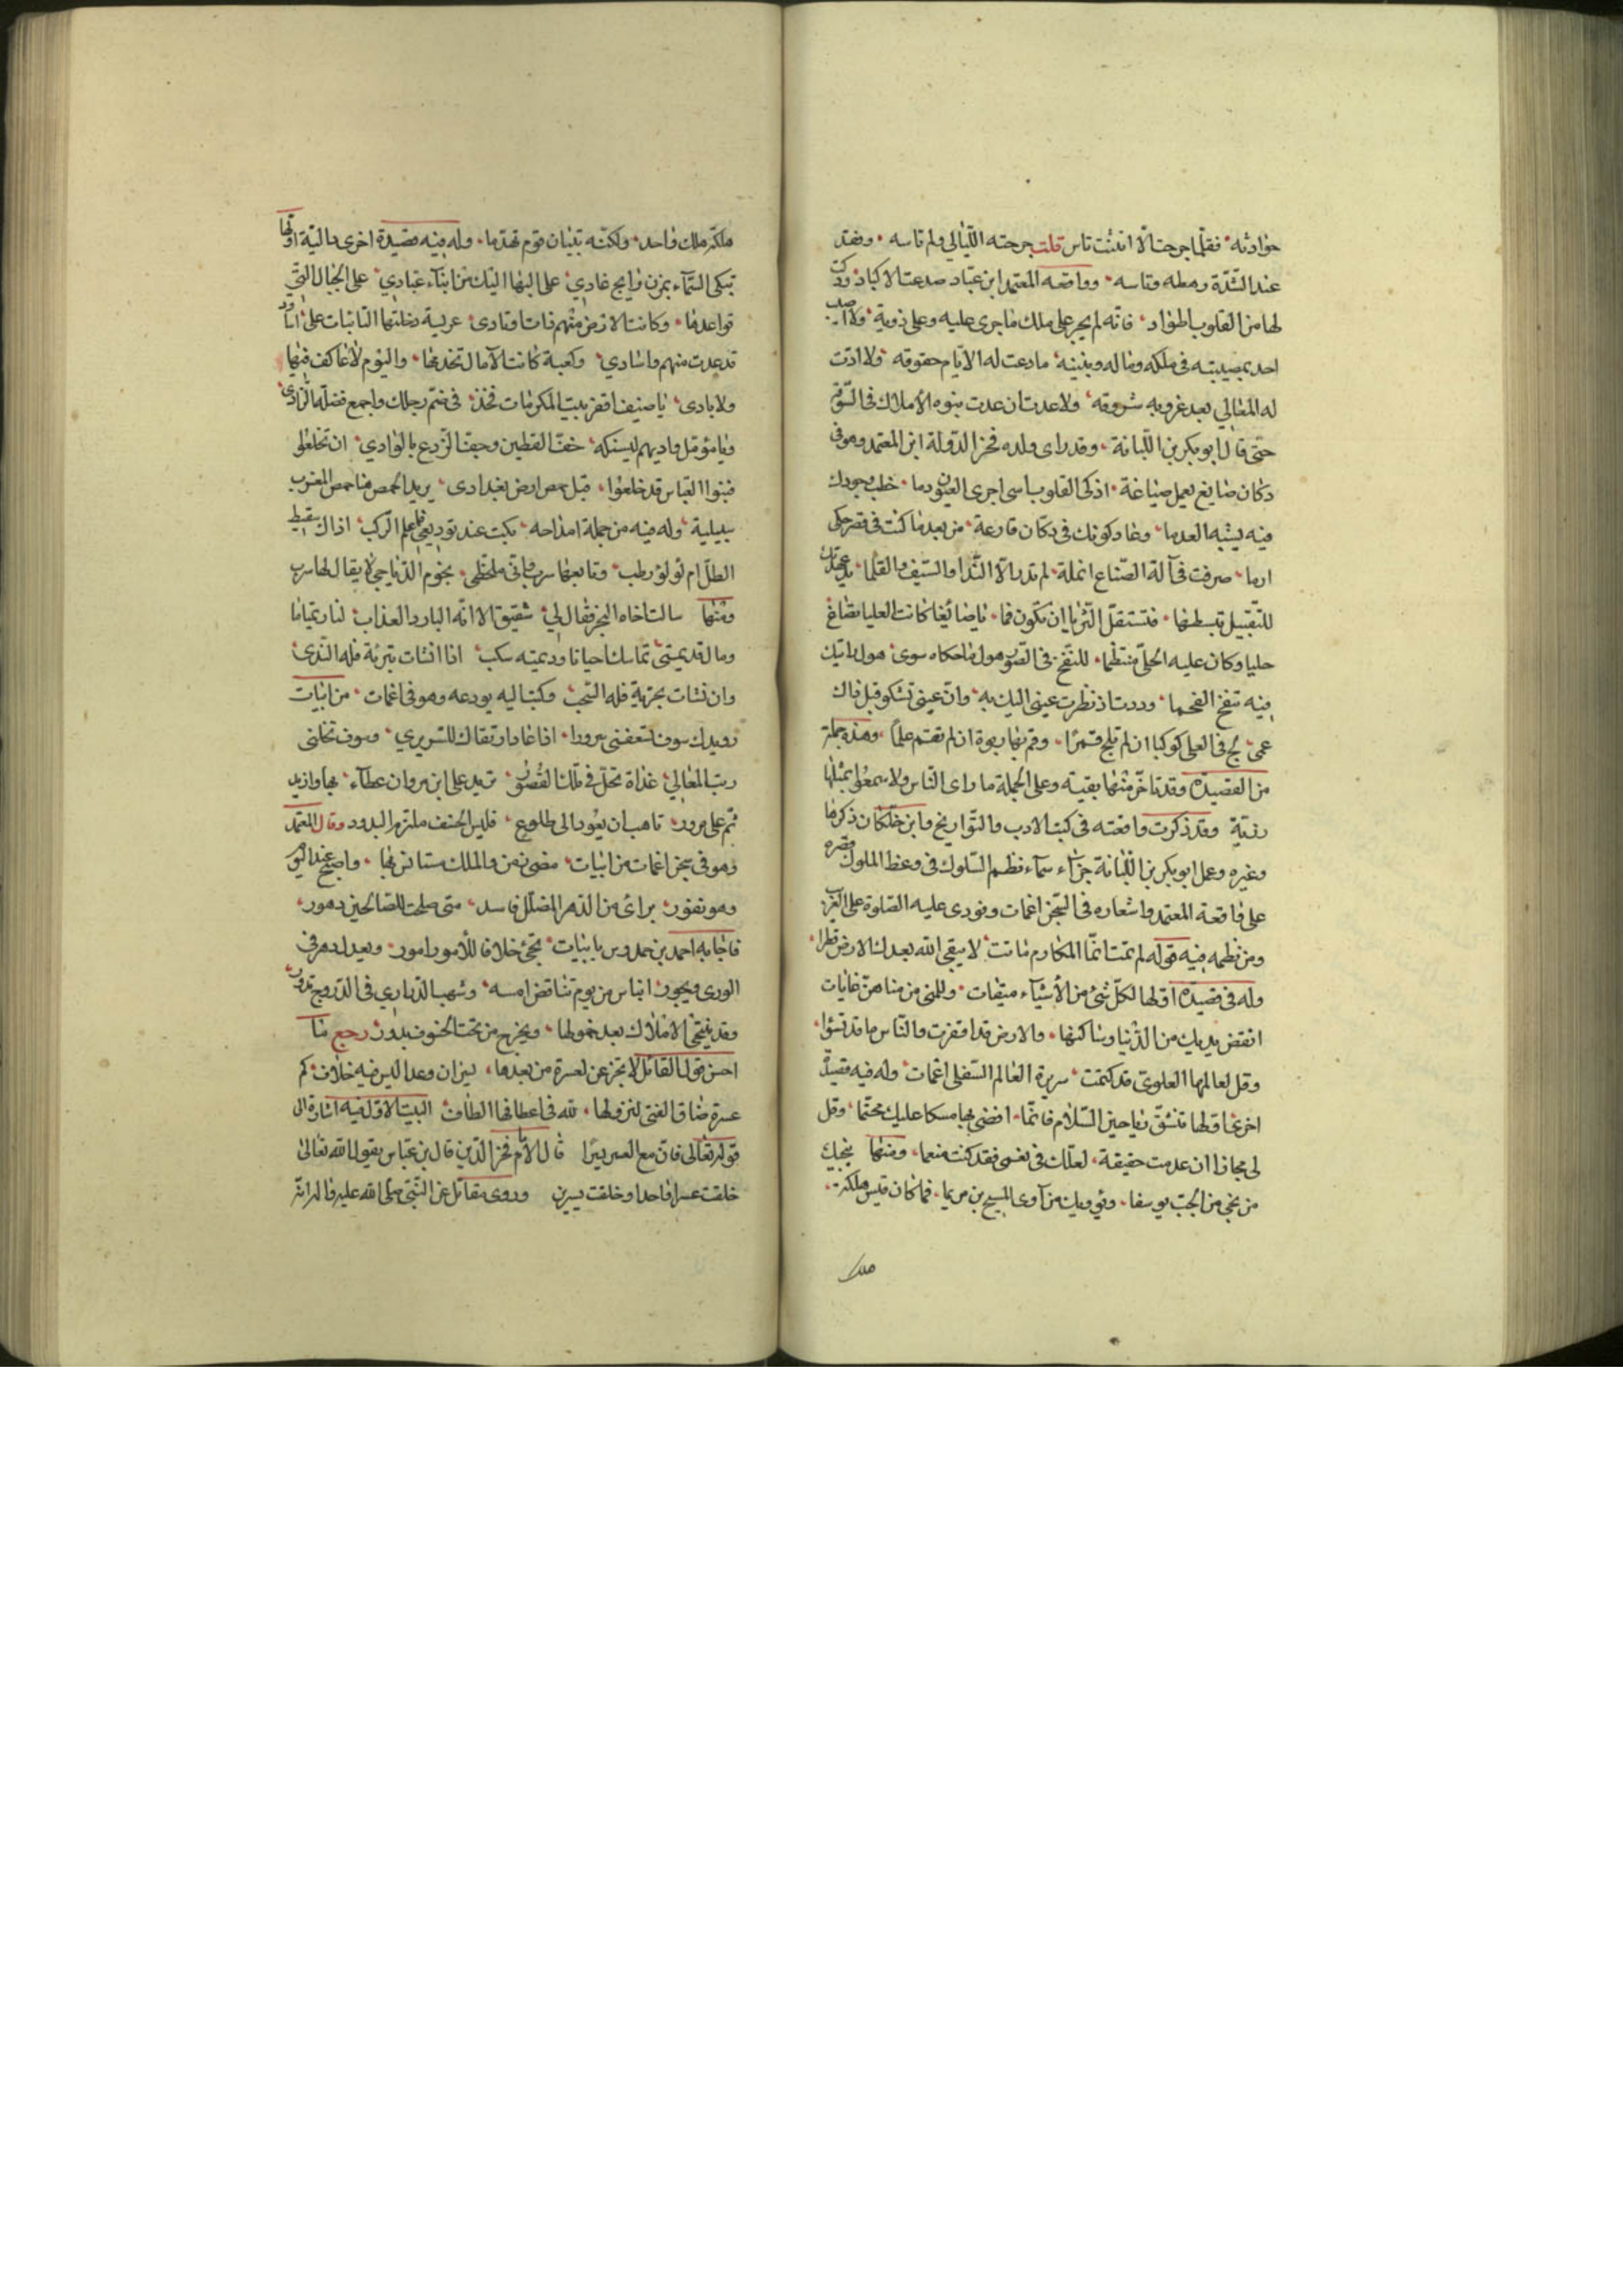 حوادثه فقلما جرحت الا انثنت تاس قلت جرحته الليالي ولم تاسه وفقد
عند الشدة رهطه وناسه وواقعة المعتمد ابن عباد صدعت الاكباد ودكت
لها من القلوب اطواد فانه لم يجر على ملك ما جرى عليه وعلى ذويه ولا اصيب
احد بمصيبته في ملكه وماله وبنيه ما رعت له الايام حقوقه ولا ادت
له المعالي بعد غروبه شروقه ولا عدت ان عدت بنوه الاملاك في السوقة
حتى قال ابو بكر بن اللبانة وقد راى ولده فخر الدولة ابن المعتمد وهو في
دكان صايغ يعمل صياغة اذكى القلوب اسى اجرى العيون دما خطب وجودك
فيه يشبه العدما وعاد كونك في دكان قارعة من بعد ما كنت في قصر حكى
ارما صرفت في آلة الصناع انملة لم تدر الا الندا والسيف والقلما يد عهدتك
للتقبيل تبسطها فتستقل الثريا ان تكون فما يا صائغا كانت العليا تصاغ
حليا وكان عليه الحلي منتظما للنفخ في الصور هول ما حكاه سوى هول رايتك
فيه تنفخ الفحما وددت اذ نظرت عيني اليك به وان عيني تشكو قبل ذاك
عمى لح في العلى كوكبا ان لم تلح قمرا وقم بها ربوة ان لم تقم علما وهذه جملة
من القصيدة وقد تاخر منها بقية وعلى الجملة ما راى الناس ولا سمعوا بمثلها
رزية وقد ذكرت واقعته في كتب الادب والتواريخ وابن خلكان ذكرها
وغيره وعمل ابو بكر بن اللبانة جزاء سماه نظم السلوك في وعظ الملوك قصره
على واقعة المعتمد واشعاره في السجن اغمات ونودى عليه الصلوة على الغريب
ومن نظمه فيه قوله لم تمت انما المكارم ماتت لا سقى الله بعدك الارض قطرا
وله في قصيدة اولها لكل شئ من الأشياء ميقات وللمنى من مناهن غايات
انفض يديك من الدنيا وساكنها والارض قد اقفرت والناس ما قد تسئوا
وقل لعالمها العلوي قد كتمت سريرة العالم السفلي اغمات وله فيه قصيدة
اخرى اولها تنشق رياحين السلام فانما افضى بها مسكا عليك محتما وقل
لي مجازا ان عدمت حقيقة لعلك في نعمى فقد كنت منعما ومنها ينجيك
من نجى من الجب يوسفا ويؤويك من آوى المسيح بن مريما فما كان قيس هلكه
ملك
ملكه ملك واحد ولكنه بنيان قوم تهدما وله فيه قصيدة اخرى دالية اولها
تبكي السماء بمزن رايح غادي على البهاليل من ابناء عبادي على الجبال التي
قواعدها وكانت الارض منهم ذات اوتادى عريسة دخلتها النائبات على اساود
قد عدت منهم واسادي وكعبة كانت الآمال تخدمها واليوم لا عاكف فيها
ولا بادى يا ضيف اقفر بيت المكرمات فخذ في ضم رحلك واجمع فضلة الزادى
ويا مؤمل واديهم ليسكنه خف القطين وجف الزرع بالوادي ان تخلعوا
فبنوا العباس قد خلعوا قبل حمص ارض بغدادى يريد بحمص هنا حمص المغرب
سبيلية وله فيه من جملة امداحه بكت عند توديعي فما علم الركب اذاك سقيط
الطل ام لؤلؤ رطب وتابعها سرب واني لمخطئ نجوم الدياجي لا يقال لها سرب
ومنها سالت اخاه البحر فقال لي شقيق الا انه البارد العذاب لنا ديمتا ما
ومال فديمتي تماسك احيانا وديمته سكب اذا انشات تبرية فله الندى
وان نشات بحرية فله السحب وكتب اليه يودعه وهو في اغمات من ابيات
رويدك سوف تسعفني سرورا اذا عاد ارتقاك للسريري وسوف تحلني
رتب المعالي غداة تحل في تلك القصور تزيد على ابن مروان عطاء بها وازيد
ثم على جرير تاهب ان تعود الى طلوع فليس الخسف ملتزم البدور وقال المعتمد
وهو في سجن اغمات من ابيات مضى زمن والملك مستانس بها واصبح عنه اليوم
وهو نفور براى من الدهر المضلل فاسد متى صلحت للصالحين دهور
فاجابه احمد بن حمدوس بابيات تجئ خلافا للأمور امور ويعدل دهر في
الورى ويجور اتياس من يوم تناقض امسه وشهب الدراري في البروج تدور
وقد ينتخي الاملاك بعد خمولها ويخرج من تحت الخسوف بدور رجع ما
احسن قول القائل لا تجزعن لعسرة من بعدها يسران وعدا ليس فيه خلاف كم
عسرة ضاق الفتى لنزولها لله في اعطافها الطاف البيت الاول فيه اشارة الى
قوله تعالى فان مع العسر يسرا قال الامام فخر الدين قال بن عباس يقول الله تعالى
خلقت عسرا واحدا وخلقت يسرين وروى مقاتل عن النبي صلى الله عليه واله انه